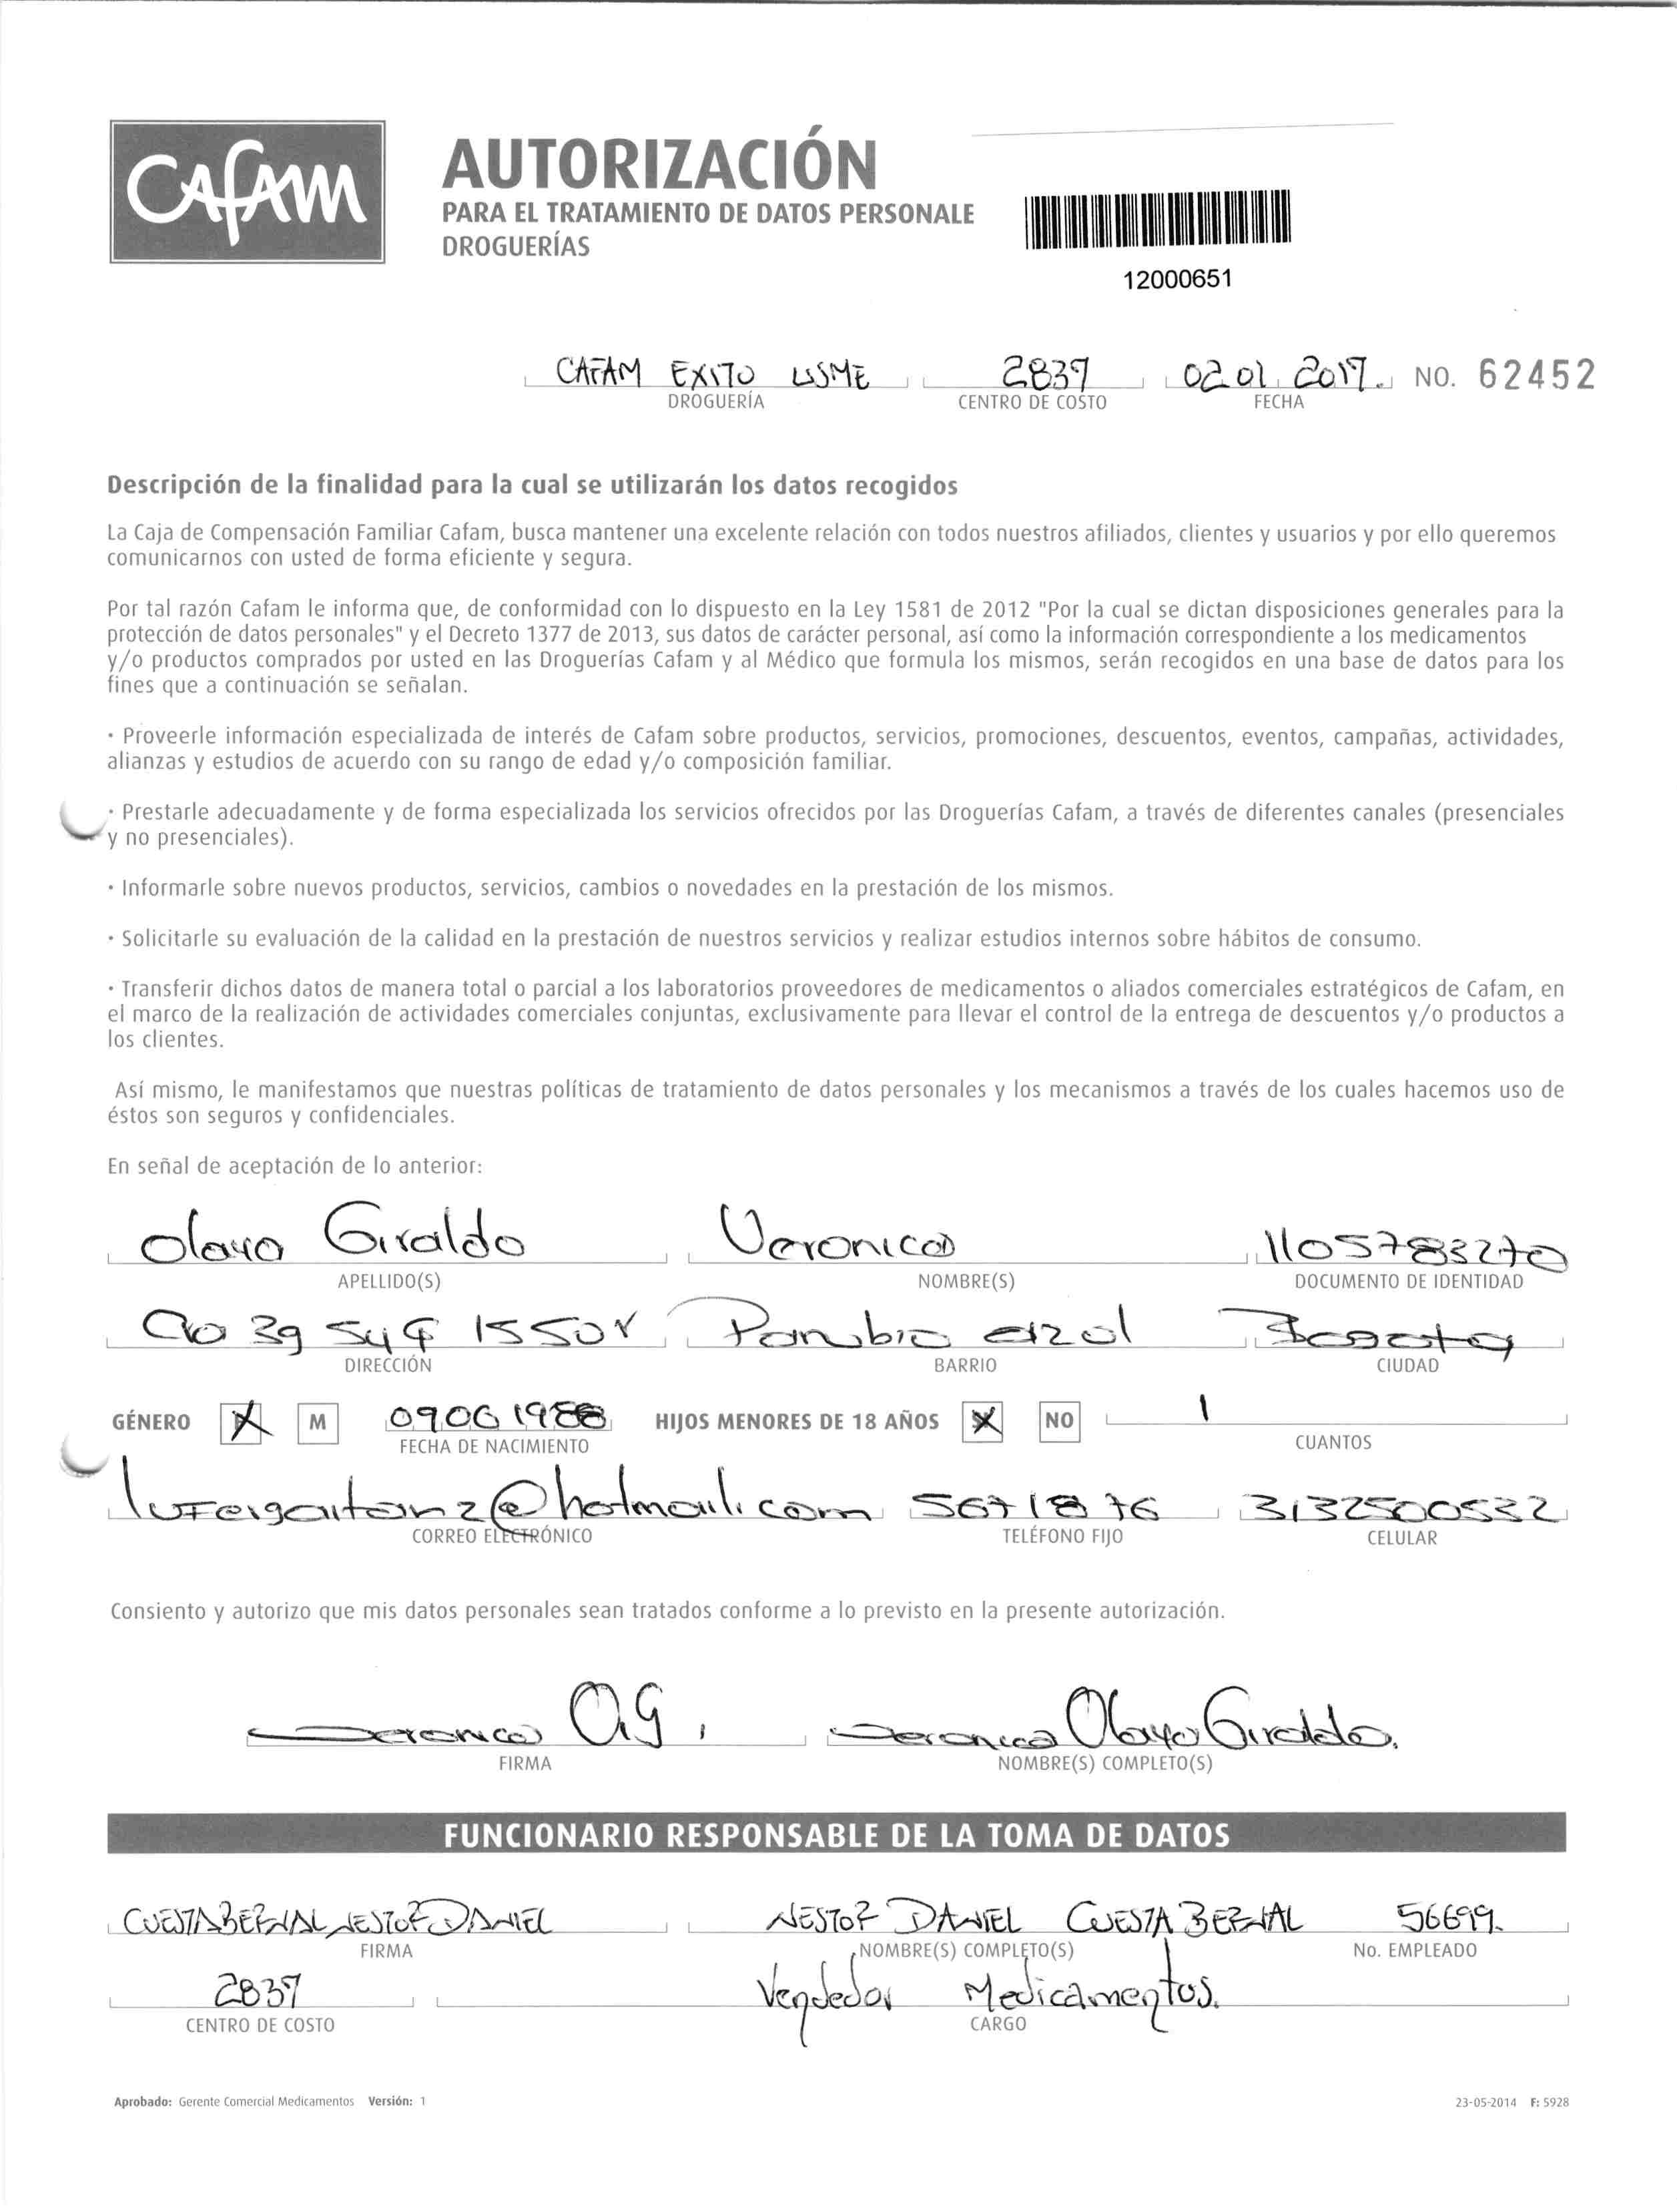 CAFAM
AUTORIZACIÓN
PARA EL TRATAMIENTO DE DATOS PERSONALE
DROGUERÍAS
12000651
CAFAM EXITO USME 2837 02 01 2017. NO. 62452
DROGUERÍA CENTRO DE COSTO FECHA
Descripción de la finalidad para la cual se utilizarán los datos recogidos
La Caja de Compensación Familiar Cafam, busca mantener una excelente relación con todos nuestros afiliados, clientes y usuarios y por ello queremos
comunicarnos con usted de forma eficiente y segura.
Por tal razón Cafam le informa que, de conformidad con lo dispuesto en la Ley 1581 de 2012 "Por la cual se dictan disposiciones generales para la
protección de datos personales" y el Decreto 1377 de 2013, sus datos de carácter personal, así como la información correspondiente a los medicamentos
y/o productos comprados por usted en las Droguerías Cafam y al Médico que formula los mismos, serán recogidos en una base de datos para los
fines que a continuación se señalan.
· Proveerle información especializada de interés de Cafam sobre productos, servicios, promociones, descuentos, eventos, campañas, actividades,
alianzas y estudios de acuerdo con su rango de edad y/o composición familiar.
· Prestarle adecuadamente y de forma especializada los servicios ofrecidos por las Droguerías Cafam, a través de diferentes canales (presenciales
y no presenciales).
· Informarle sobre nuevos productos, servicios, cambios o novedades en la prestación de los mismos.
· Solicitarle su evaluación de la calidad en la prestación de nuestros servicios y realizar estudios internos sobre hábitos de consumo.
· Transferir dichos datos de manera total o parcial a los laboratorios proveedores de medicamentos o aliados comerciales estratégicos de Cafam, en
el marco de la realización de actividades comerciales conjuntas, exclusivamente para llevar el control de la entrega de descuentos y/o productos a
los clientes.
Así mismo, le manifestamos que nuestras políticas de tratamiento de datos personales y los mecanismos a través de los cuales hacemos uso de
éstos son seguros y confidenciales.
En señal de aceptación de lo anterior:
Olaya Giraldo Veronica 1105783270
APELLIDO(S) NOMBRE(S) DOCUMENTO DE IDENTIDAD
39 azul Bogota
DIRECCIÓN BARRIO CIUDAD
GÉNERO X M 09061988 HIJOS MENORES DE 18 AÑOS X NO 1
FECHA DE NACIMIENTO CUANTOS
5671876 3132500532
CORREO ELECTRÓNICO TELÉFONO FIJO CELULAR
Consiento y autorizo que mis datos personales sean tratados conforme a lo previsto en la presente autorización.
Veronica O.G. Veronica Olaya Giraldo.
FIRMA NOMBRE(S) COMPLETO(S)
FUNCIONARIO RESPONSABLE DE LA TOMA DE DATOS
CUESTA BERNAL NESTOR DANIEL NESTOR DANIEL CUESTA BERNAL 56699.
FIRMA NOMBRE(S) COMPLETO(S) No. EMPLEADO
2837 Vendedor Medicamentos.
CENTRO DE COSTO CARGO
Aprobado: Gerente Comercial Medicamentos Versión: 1 23-05-2014 F: 5928